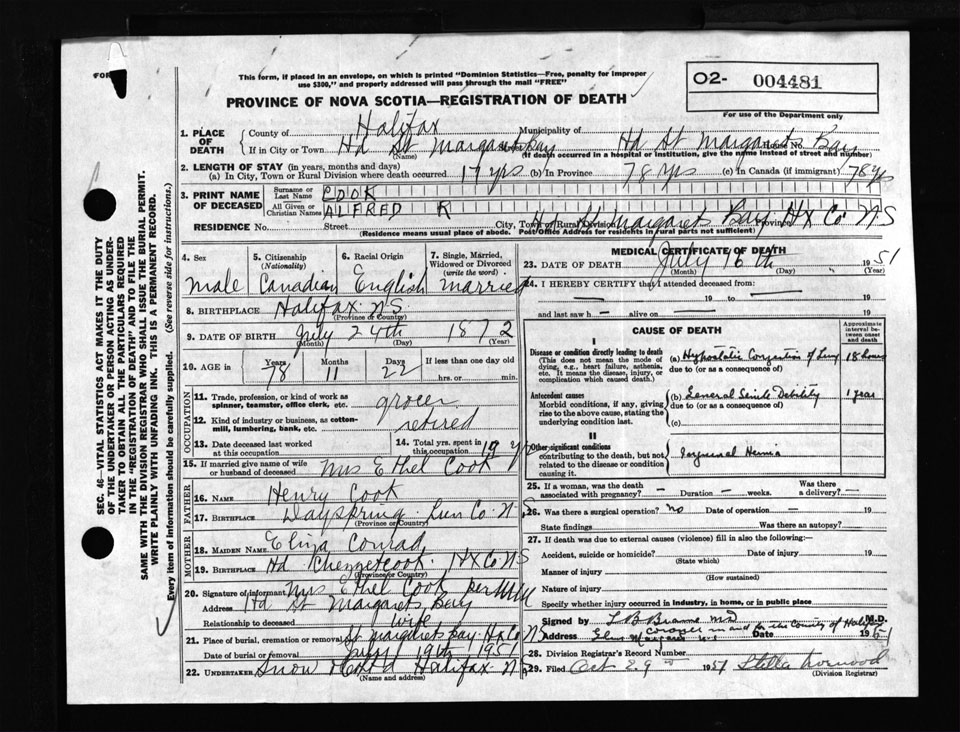 FOR
This form, if placed in an envelope, on which is printed "Dominion Statistics—Free, penalty for improper
use $300," and properly addressed will pass through the mail "FREE"
O2- 004481
For use of the Department only
PROVINCE OF NOVA SCOTIA—REGISTRATION OF DEATH
1. PLACE OF DEATH
County of Halifax Municipality of
If in City or Town Hd St Margarets Bay House No. Hd St Margarets Bay
(Name) (If death occurred in a hospital or institution, give the name instead of street and number)
2. LENGTH OF STAY (in years, months and days)
(a) In City, Town or Rural Division where death occurred 17 yrs (b) In Province 78 yrs (c) In Canada (if immigrant) 78 yrs
3. PRINT NAME OF DECEASED
Surname or Last Name COOK
All Given or Christian Names ALFRED R
RESIDENCE No. Street City, Town or Rural Division Hd St Margarets Bay Province Hx Co NS
(Residence means usual place of abode. Post Office Address for residents in rural parts not sufficient)
4. Sex
male
5. Citizenship
(Nationality)
Canadian
6. Racial Origin
English
7. Single, Married,
Widowed or Divorced
(write the word)
married
8. BIRTHPLACE Halifax N.S.
(Province or Country)
9. DATE OF BIRTH July 24th 1872
(Month) (Day) (Year)
10. AGE in
Years Months Days If less than one day old
78 11 22 hrs. or min.
OCCUPATION
11. Trade, profession, or kind of work as
spinner, teamster, office clerk, etc. grocer
12. Kind of industry or business, as cotton-
mill, lumbering, bank, etc. retired
13. Date deceased last worked
at this occupation
14. Total yrs. spent in
this occupation
15. If married give name of wife
or husband of deceased Mrs Ethel Cook
FATHER
16. NAME Henry Cook
17. BIRTHPLACE Dayspring Lun Co N.S.
(Province or Country)
MOTHER
18. MAIDEN NAME Eliza Conrad
19. BIRTHPLACE Hd Chezzetcook Hx Co NS
(Province or Country)
20. Signature of informant Mrs Ethel Cook per
Address Hd St Margarets Bay
Relationship to deceased wife
21. Place of burial, cremation or removal St Margarets Bay Hx Co N
Date of burial or removal July 19th 1951
22. UNDERTAKER Snow & Co Ltd Halifax N
(Name and address)
MEDICAL CERTIFICATE OF DEATH
23. DATE OF DEATH July 16th 1951
(Month) (Day) (Year)
24. I HEREBY CERTIFY that I attended deceased from:
— 19 to — 19
and last saw h — alive on — 19
CAUSE OF DEATH
Approximate
interval be-
tween onset
and death
I
Disease or condition directly leading to death
(This does not mean the mode of
dying, e.g., heart failure, asthenia,
etc. It means the disease, injury, or
complication which caused death.)
(a) Hypostatic Congestion of Lung 18 hours
due to (or as a consequence of)
Antecedent causes
Morbid conditions, if any, giving
rise to the above cause, stating the
underlying condition last.
(b) General Senile Debility 1 year
due to (or as a consequence of)
(c)
II
Other significant conditions
contributing to the death, but not
related to the disease or condition
causing it.
Inguinal Hernia
25. If a woman, was the death
associated with pregnancy? — Duration — weeks. Was there
a delivery? —
26. Was there a surgical operation? No Date of operation —
State findings Was there an autopsy?
27. If death was due to external causes (violence) fill in also the following:
Accident, suicide or homicide? Date of injury 19
(State which)
Manner of injury
(How sustained)
Nature of injury
Specify whether injury occurred in industry, in home, or in public place
Signed by M.D.
coroner in and for the County of Halifax
Address Date 1951
28. Division Registrar's Record Number
29. Filed Oct 29th 1951 Stella
(Division Registrar)
SEC. 46—VITAL STATISTICS ACT MAKES IT THE DUTY
OF THE UNDERTAKER OR PERSON ACTING AS UNDER-
TAKER TO OBTAIN ALL THE PARTICULARS REQUIRED
IN THE "REGISTRATION OF DEATH" AND TO FILE THE
SAME WITH THE DIVISION REGISTRAR WHO SHALL ISSUE THE BURIAL PERMIT.
WRITE PLAINLY WITH UNFADING INK. THIS IS A PERMANENT RECORD.
Every item of information should be carefully supplied. (See reverse side for instructions.)